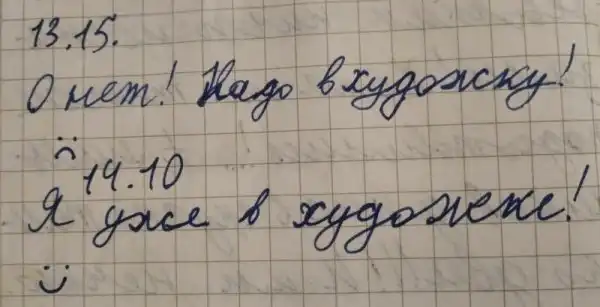 13.15.
О нет! Надо в художку!
14.10
Я уже в художке!